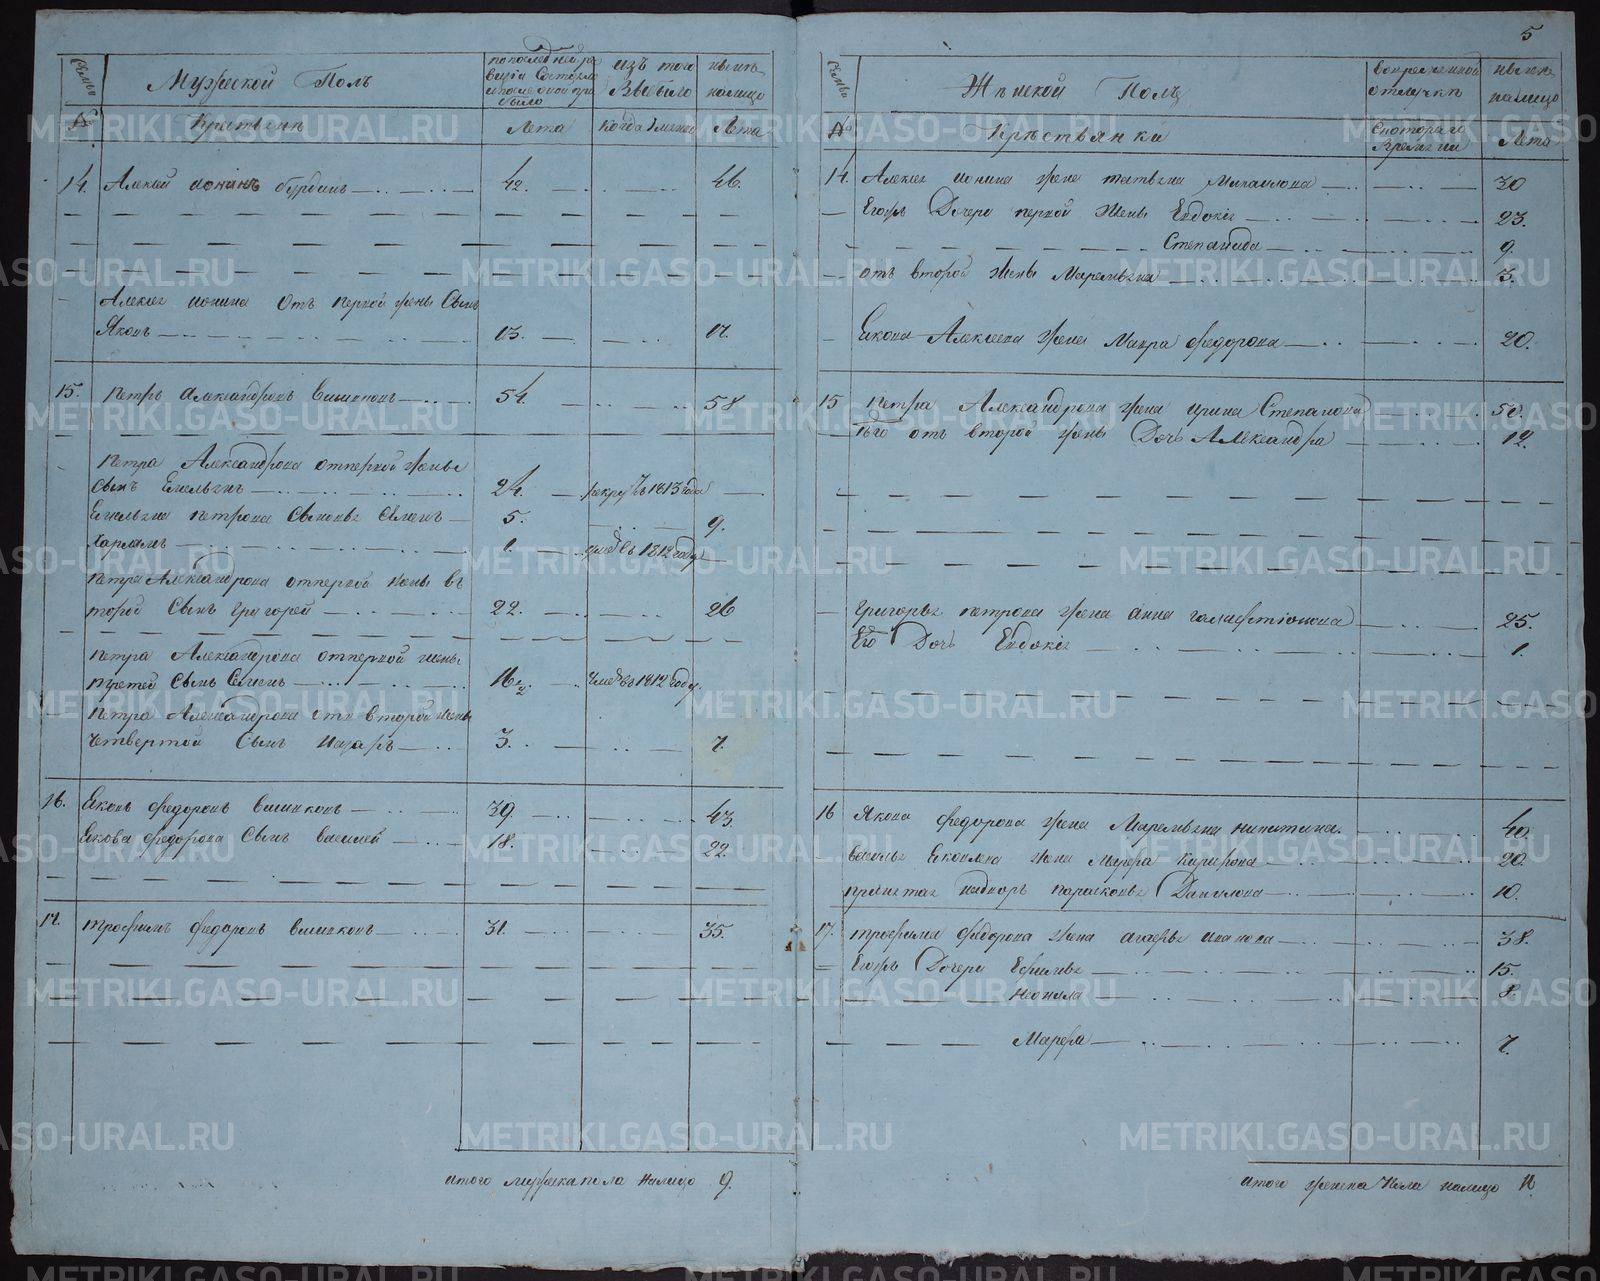 5
Семьи
Мужеской Полъ
по последней ре
визiи Состояло
и после оной при
было
изъ того
Выбыло
ныне
налицо
№
Крестьяне
Лета
Когда Именно
Лета
14. Алексей Ионинъ 42. 46.
Алексея Ионина Отъ первой жены Сынъ
Яковъ 13. 17.
15. Петръ Александровъ 54. 58
Петра Александрова отпервой жены
Сынъ Емельянъ 24. рекрутъ 1813 года
Емельяна Петрова Сыновья Семенъ 5. 9.
Харламъ 1. умеръ въ 1812 году
Петра Александрова отпервой жены в
торой Сынъ Григорей 22. 26
Петра Александрова отпервой жены
третей Сынъ Семенъ 16 1/2 умеръ въ 1812 году.
Петра Александрова отъ второй жены
Четвертой Сынъ Назаръ 3. 7.
16. Яковъ Федоровъ 39. 43.
Якова Федорова Сынъ Василей 18. 22.
17. Трофимъ Федоровъ 31. 35.
итого мужеска пола Налицо 9.
Семьи
Женской Полъ
во временной
отлучке
ныне
налицо
№
Крестьянки
Скотораго
Времени
Лета
14. Алексея Ионина жена Татьяна Михайлова 30
Егожъ Дочери первой Жены Евдокия 23.
Степанида 9.
отъ второй жены Маремьяна 3.
Якова Алексеева жена Мавра Федорова 20.
15 Петра Александрова жена Ирина Степанова 50.
Его отъ второй жены Дочь Александра 12.
Григорья Петрова жена Анна 25.
Его Дочь Евдокия 1.
16 Якова Федорова жена Маремьяна Никитина. 40.
Василья Яковлева жена Марфа 20.
Парасковья Данилова 10.
17. Трофима Федорова жена Агафья Иванова 38.
Егожъ Дочери Ефимья 15.
Неонила 8
Марфа 7.
итого женска Пола налицо
METRIKI.GASO-URAL.RU